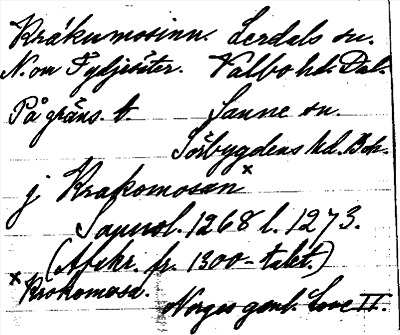 Kråkumosinn. Lerdals sn.
N. om Tydjesäter. Valbo hd. Dal.
På gräns. t. Sanne sn.
Sörbygdens hd. Boh.
j Krakomosan x
Sannol. 1268 l. 1273.
(Afskr. fr. 1300-talet.)
x Krokomosa.
Norges gml. Love II.